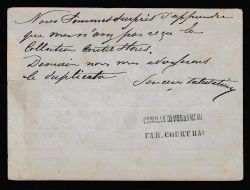 Nous sommes surpris d'apprendre
que vous n'ayez pas reçu la
Collection
Demain nous vous adresserons
le duplicata
Sincères salutations
FAB. COURTRAI